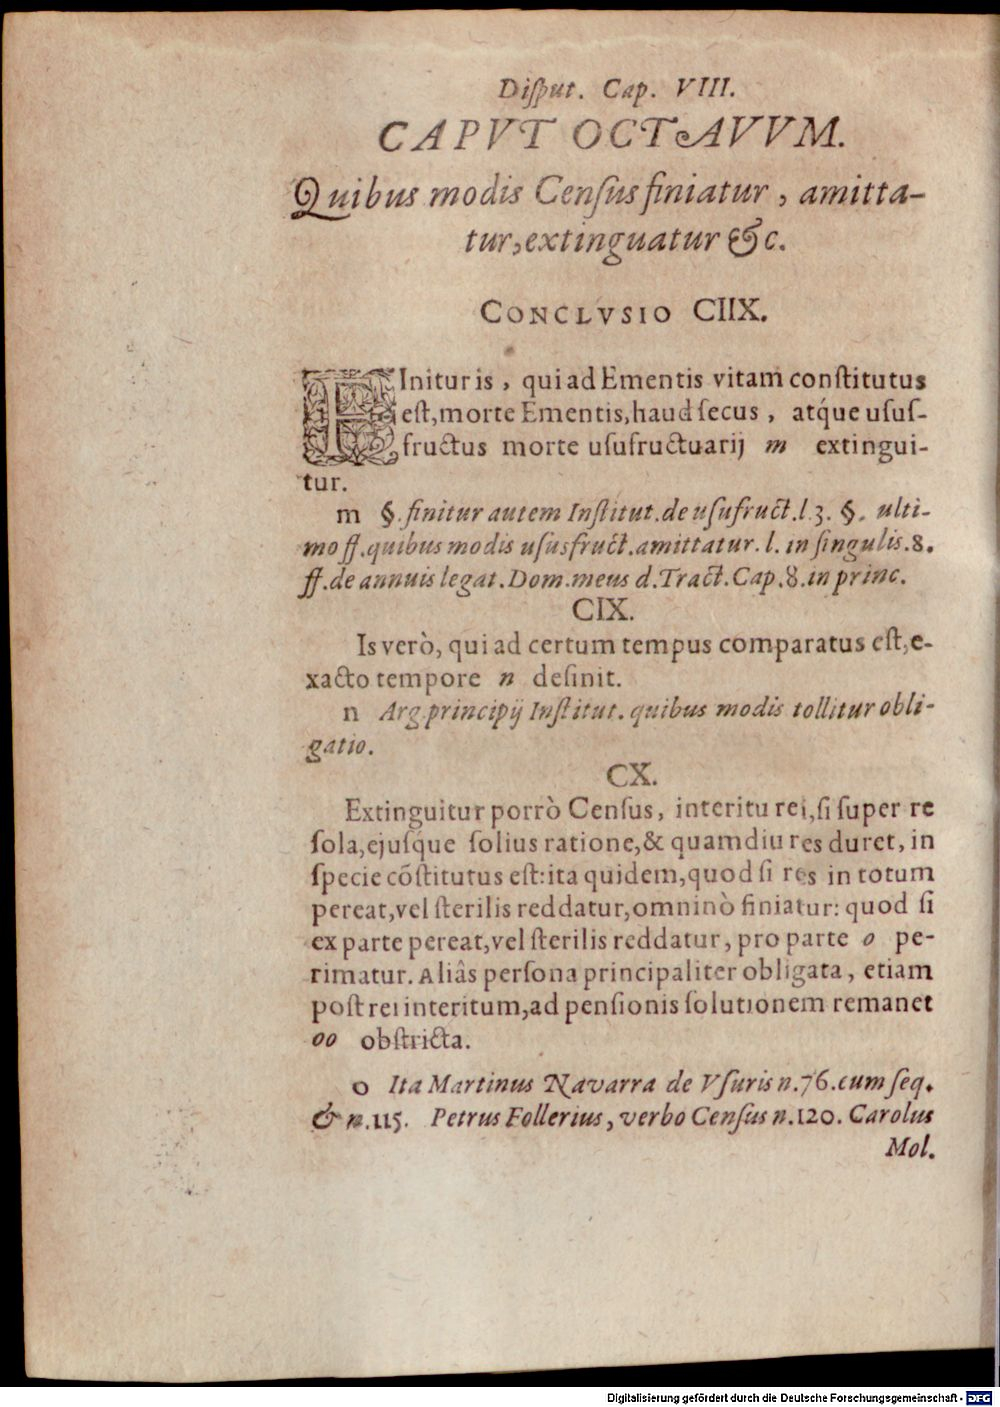 Diſput. Cap. VIII.
CAPVT OCTAVVM.
Quibus modis Cenſus finiatur, amitta-
tur, extinguatur &c.
CONCLVSIO CIIX.
FInitur is, qui ad Ementis vitam conſtitutus
eſt, morte Ementis, haud ſecus, atq́ue uſuſ-
fructus morte uſufructuarij m extingui-
tur.
m §. finitur autem Inſtitut. de uſufruct. l. 3. §. ulti-
mo ff. quibus modis uſusfruct. amittatur. l. in ſingulis. 8.
ff. de annuis legat. Dom. meus d. Tract. Cap. 8. in princ.
CIX.
Is verò, qui ad certum tempus comparatus eſt, e-
xacto tempore n deſinit.
n Arg. principij Inſtitut. quibus modis tollitur obli-
gatio.
CX.
Extinguitur porrò Cenſus, interitu rei, ſi ſuper re
ſola, ejuſq́ue ſolius ratione, & quamdiu res duret, in
ſpecie cõſtitutus eſt: ita quidem, quod ſi res in totum
pereat, vel ſterilis reddatur, omninò finiatur: quod ſi
ex parte pereat, vel ſterilis reddatur, pro parte o pe-
rimatur. Aliâs perſona principaliter obligata, etiam
poſt rei interitum, ad penſionis ſolutionem remanet
oo obſtricta.
o Ita Martinus Navarra de Vſuris n. 76. cum ſeq.
& n. 115. Petrus Follerius, verbo Cenſus n. 120. Carolus
Mol.
Digitalisierung gefördert durch die Deutsche Forschungsgemeinschaft - DFG